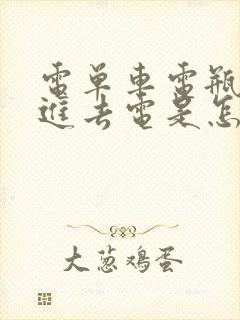 電單車電瓶
進去電是怎
大葱鸡蛋